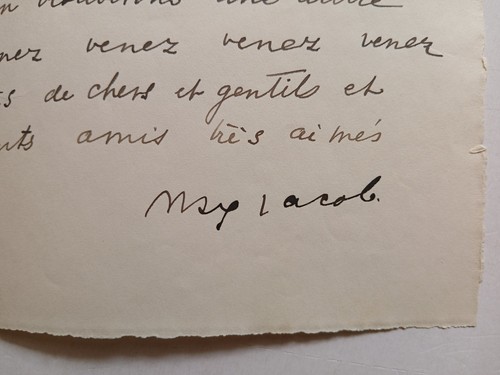 une autre
venez venez venez
de chers et gentils et
amis très aimés
Max Jacob.